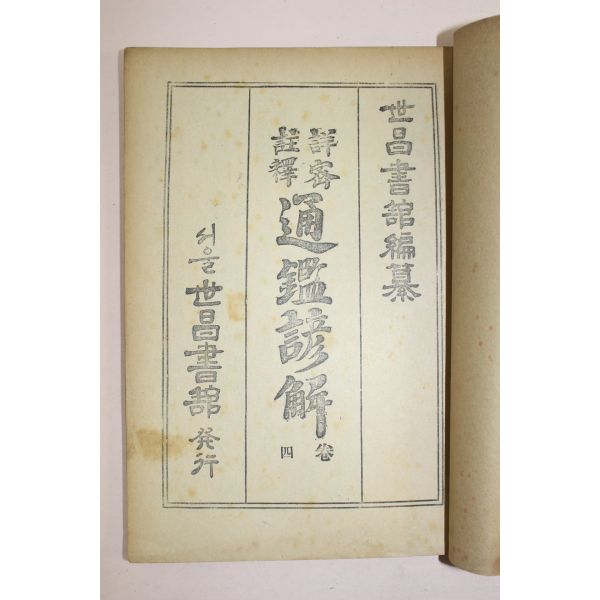 世昌書館編纂
詳密
註釋
通鑑諺解
卷
四
서울 世昌書舘 発行